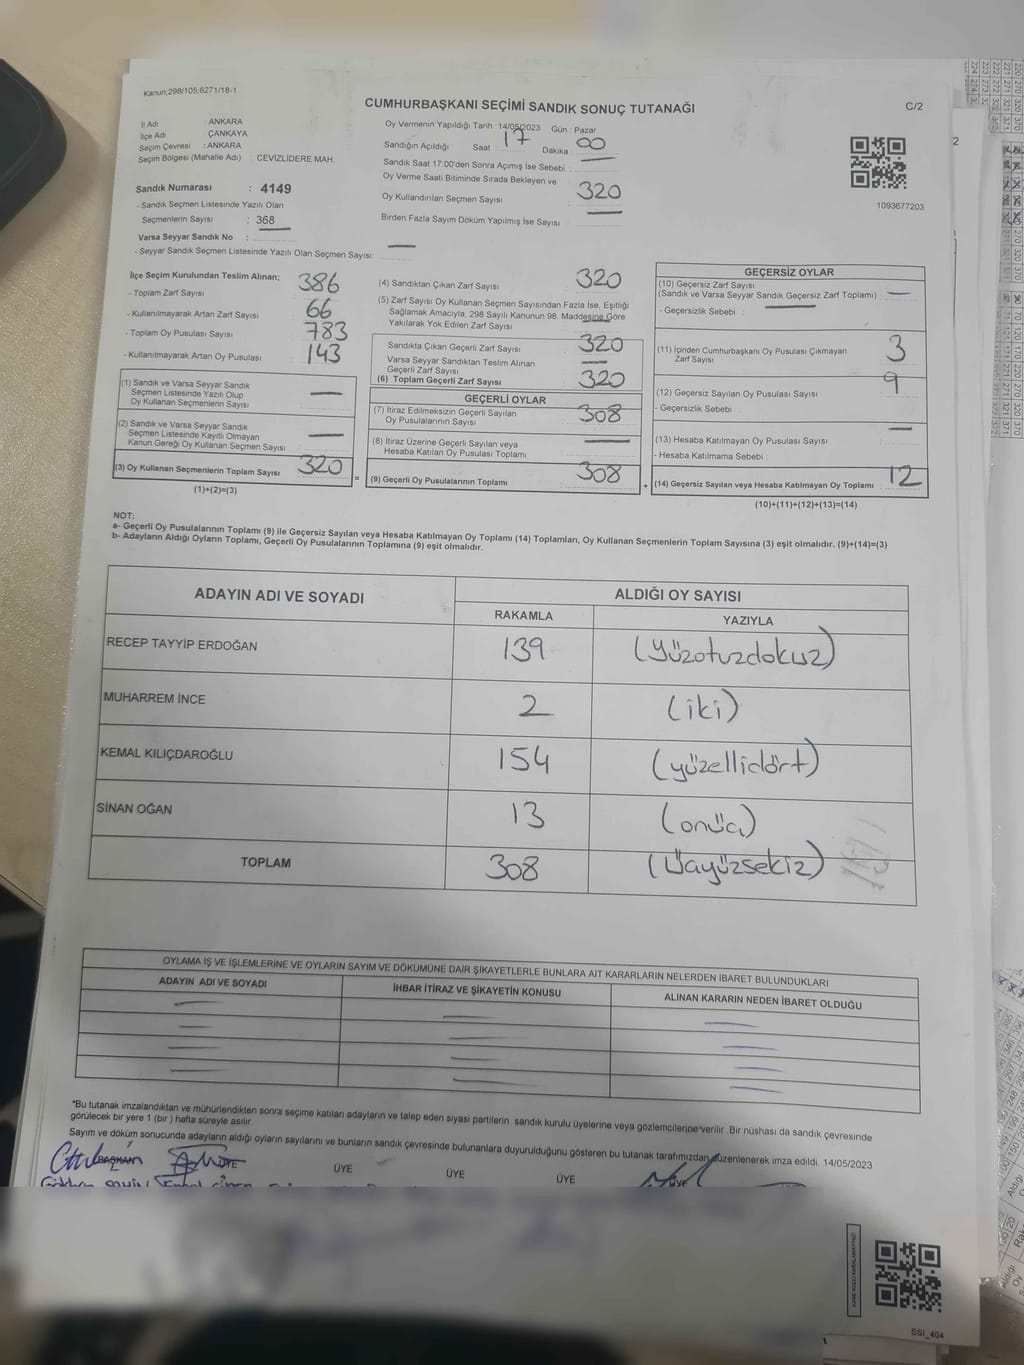 Kanun:298/105;6271/18-1
CUMHURBAŞKANI SEÇİMİ SANDIK SONUÇ TUTANAĞI
C/2
İl Adı : ANKARA
İlçe Adı : ÇANKAYA
Seçim Çevresi : ANKARA
Seçim Bölgesi (Mahalle Adı) : CEVİZLİDERE MAH.
Sandık Numarası : 4149
- Sandık Seçmen Listesinde Yazılı Olan
Seçmenlerin Sayısı : 368
Varsa Seyyar Sandık No :
- Seyyar Sandık Seçmen Listesinde Yazılı Olan Seçmen Sayısı: —
Oy Vermenin Yapıldığı Tarih : 14/05/2023 Gün : Pazar
Sandığın Açıldığı Saat 17 Dakika 00
Sandık Saat 17.00'den Sonra Açımış İse Sebebi : —
Oy Verme Saati Bitiminde Sırada Bekleyen ve
Oy Kullandırılan Seçmen Sayısı 320
Birden Fazla Sayım Döküm Yapılmış İse Sayısı —
1093677203
İlçe Seçim Kurulundan Teslim Alınan;
- Toplam Zarf Sayısı 386
- Kullanılmayarak Artan Zarf Sayısı 66
- Toplam Oy Pusulası Sayısı 783
- Kullanılmayarak Artan Oy Pusulası 143
(1) Sandık ve Varsa Seyyar Sandık
Seçmen Listesinde Yazılı Olup
Oy Kullanan Seçmenlerin Sayısı —
(2) Sandık ve Varsa Seyyar Sandık
Seçmen Listesinde Kayıtlı Olmayan
Kanun Gereği Oy Kullanan Seçmen Sayısı —
(3) Oy Kullanan Seçmenlerin Toplam Sayısı 320
(1)+(2)=(3)
(4) Sandıktan Çıkan Zarf Sayısı 320
(5) Zarf Sayısı Oy Kullanan Seçmen Sayısından Fazla İse, Eşitliği
Sağlamak Amacıyla, 298 Sayılı Kanunun 98. Maddesine Göre
Yakılarak Yok Edilen Zarf Sayısı —
Sandıkta Çıkan Geçerli Zarf Sayısı 320
Varsa Seyyar Sandıktan Teslim Alınan
Geçerli Zarf Sayısı —
(6) Toplam Geçerli Zarf Sayısı 320
GEÇERLİ OYLAR
(7) İtiraz Edilmeksizin Geçerli Sayılan
Oy Pusulalarının Sayısı 308
(8) İtiraz Üzerine Geçerli Sayılan veya
Hesaba Katılan Oy Pusulası Toplamı —
= (9) Geçerli Oy Pusulalarının Toplamı 308
GEÇERSİZ OYLAR
(10) Geçersiz Zarf Sayısı
(Sandık ve Varsa Seyyar Sandık Geçersiz Zarf Toplamı) —
- Geçersizlik Sebebi : —
(11) İçinden Cumhurbaşkanı Oy Pusulası Çıkmayan
Zarf Sayısı 3
(12) Geçersiz Sayılan Oy Pusulası Sayısı 9
- Geçersizlik Sebebi :
(13) Hesaba Katılmayan Oy Pusulası Sayısı —
- Hesaba Katılmama Sebebi :
+ (14) Geçersiz Sayılan veya Hesaba Katılmayan Oy Toplamı 12
(10)+(11)+(12)+(13)=(14)
NOT:
a- Geçerli Oy Pusulalarının Toplamı (9) ile Geçersiz Sayılan veya Hesaba Katılmayan Oy Toplamı (14) Toplamları, Oy Kullanan Seçmenlerin Toplam Sayısına (3) eşit olmalıdır. (9)+(14)=(3)
b- Adayların Aldığı Oyların Toplamı, Geçerli Oy Pusulalarının Toplamına (9) eşit olmalıdır.
ADAYIN ADI VE SOYADI ALDIĞI OY SAYISI
RAKAMLA YAZIYLA
RECEP TAYYİP ERDOĞAN 139 (yüzotuzdokuz)
MUHARREM İNCE 2 (iki)
KEMAL KILIÇDAROĞLU 154 (yüzellidört)
SİNAN OĞAN 13 (onüç)
TOPLAM 308 (Üçyüzsekiz)
OYLAMA İŞ VE İŞLEMLERİNE VE OYLARIN SAYIM VE DÖKÜMÜNE DAİR ŞİKAYETLERLE BUNLARA AİT KARARLARIN NELERDEN İBARET BULUNDUKLARI
ADAYIN ADI VE SOYADI İHBAR İTİRAZ VE ŞİKAYETİN KONUSU ALINAN KARARIN NEDEN İBARET OLDUĞU
*Bu tutanak imzalandıktan ve mühürlendikten sonra seçime katılan adayların ve talep eden siyasi partilerin sandık kurulu üyelerine veya gözlemcilerine verilir .Bir nüshası da sandık çevresinde
görülecek bir yere 1 (bir ) hafta süreyle asılır.
Sayım ve döküm sonucunda adayların aldığı oyların sayılarını ve bunların sandık çevresinde bulunanlara duyurulduğunu gösteren bu tutanak tarafımızdan düzenlenerek imza edildi. 14/05/2023
BAŞKAN ÜYE ÜYE ÜYE ÜYE ÜYE
SSI_404